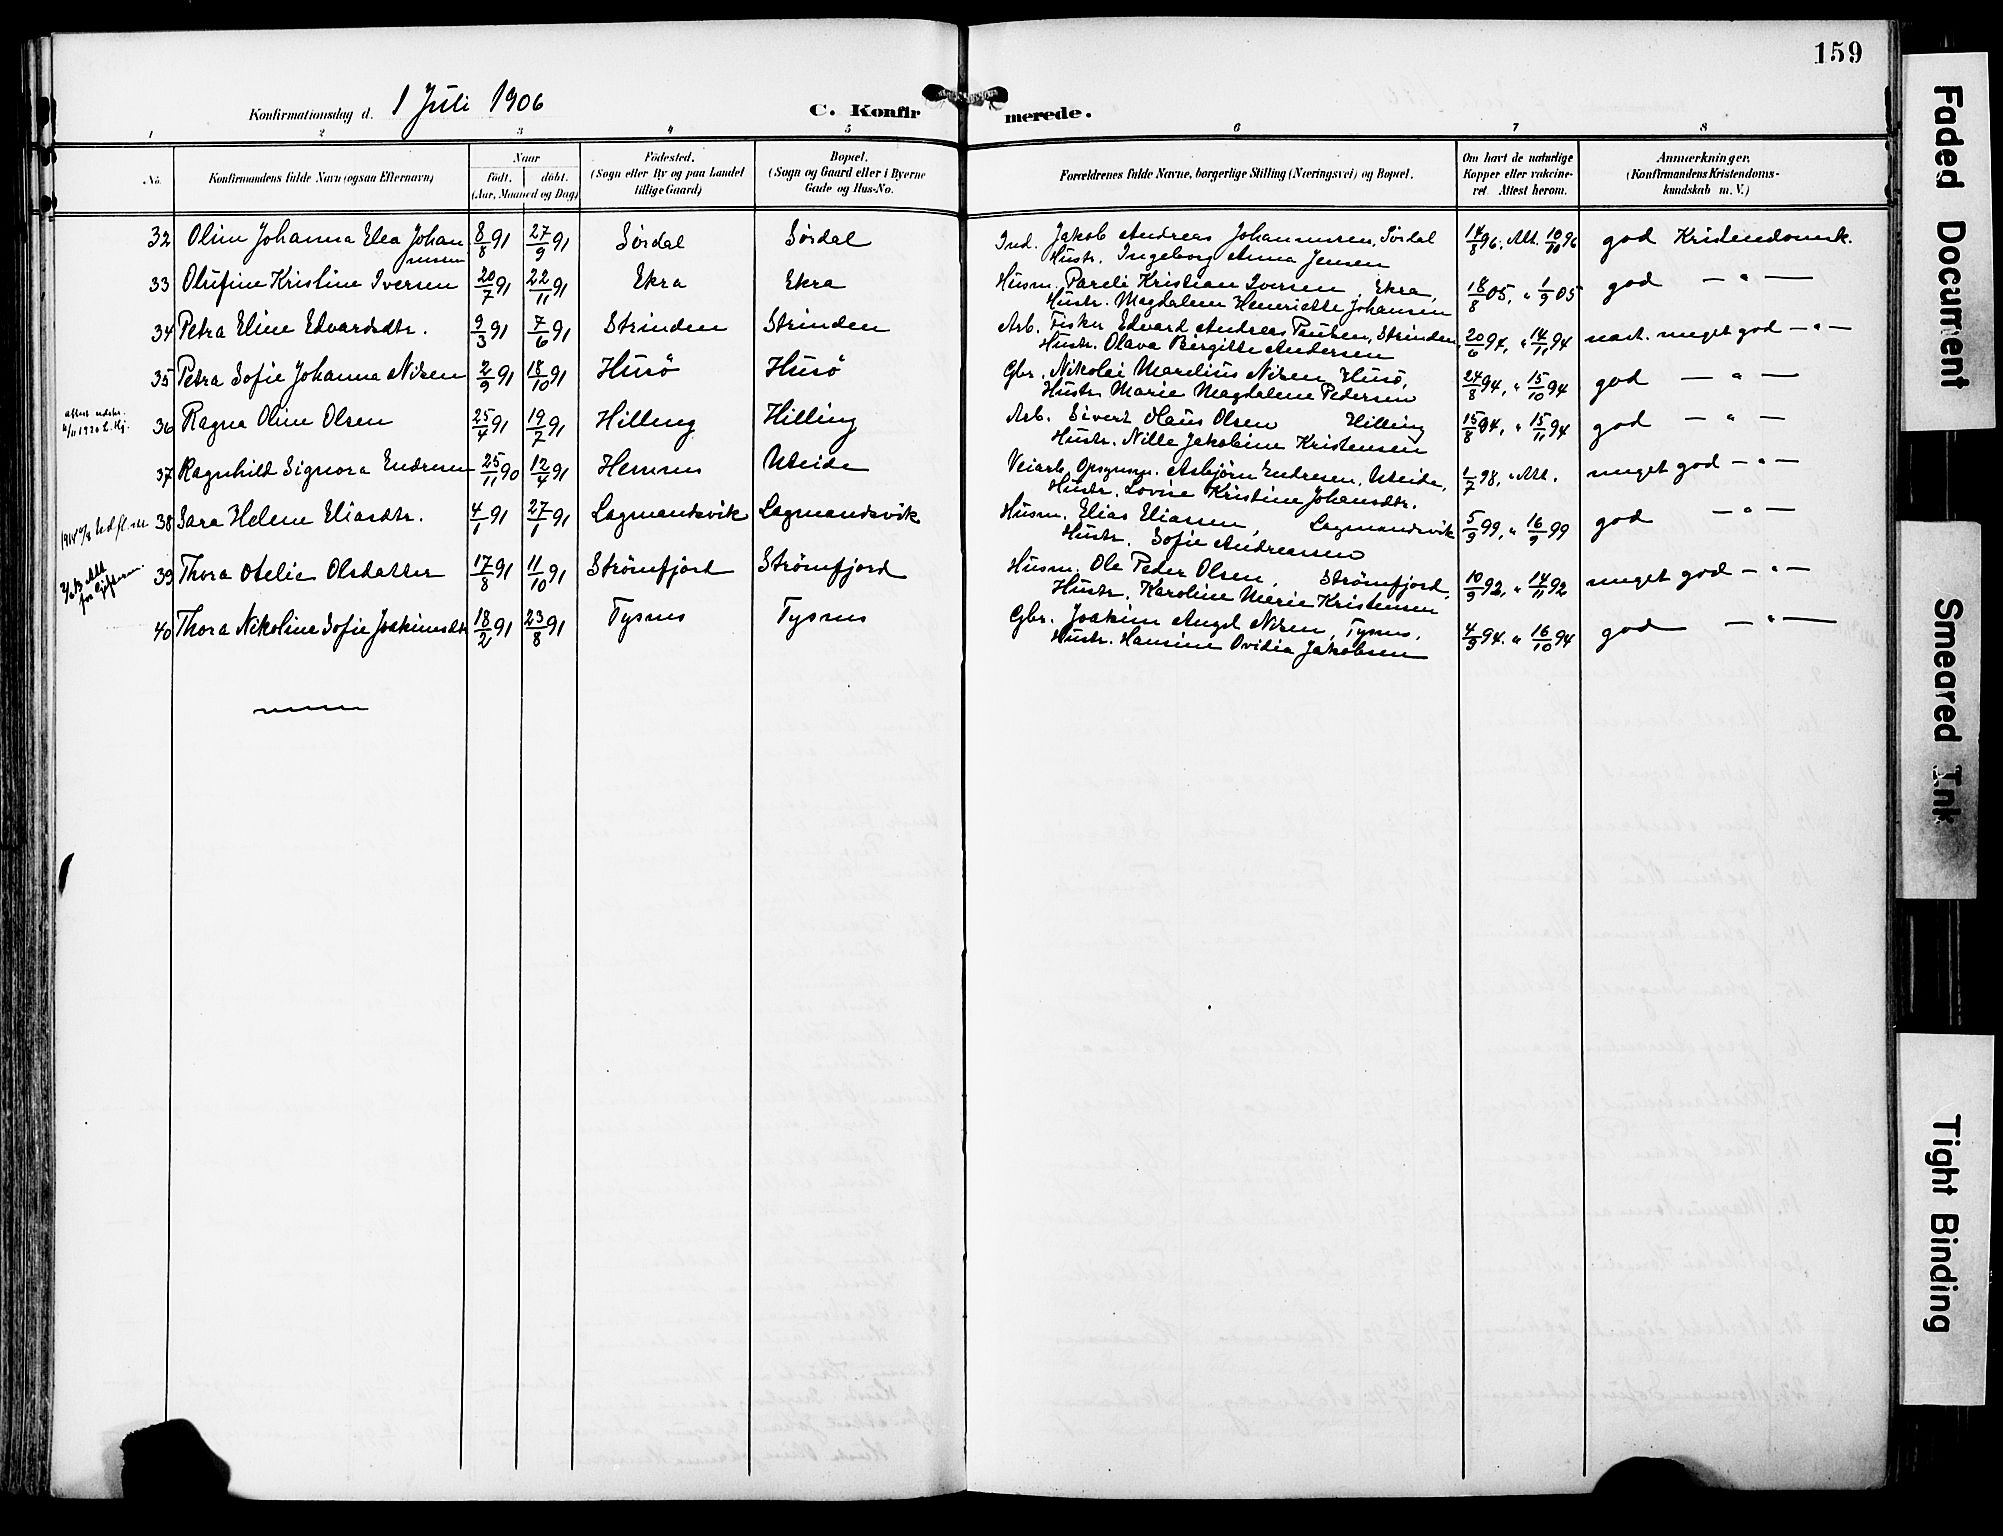 159
Konfirmationsdag d. 1 Juli 1906
C. Konfirmerede.
1 2 3 4 5 6 7 8
No.
Konfirmandens fulde Navn (ogsaa Efternavn)
Naar
födt. döbt.
(Aar, Maaned og Dag)
Födested.
(Sogn eller By og paa Landet
tillige Gaard)
Bopæl.
(Sogn og Gaard eller i Byerne
Gade og Hus-No.
Forældrenes fulde Navne, borgerlige Stilling (Næringsvei) og Bopæl.
Om havt de naturlige
Kopper eller vakcine-
ret Attest herom.
Anmærkninger.
(Konfirmandens Kristendoms-
kundskab m. V.)
32 Oline Johanna Elea Johannesen 8/8 91 27/9 91 Sördal Sördal Ind. Jakob Andreas Johannesen, Sördal 14/8 96. Att. 10/11 96 god Kristendomsk.
Hustr. Ingeborg Anna Jensen
33 Olufine Kristine Iversen 20/7 91 22/11 91 Ekra Ekra Husm. Pareli Kristian Iversen, Ekra, 18/8 05, " 1/9 05 god — " —
Hustr. Magdalena Henriette Johansen
34 Petra Eline Edvardsdtr. 9/3 91 7/6 91 Strinden Strinden Arb. Fisker Edvard Andreas Paulsen, Strinden, 20/6 94, " 14/11 94 meget god — " —
Hustr. Olava Birgitte Andersen
35 Petra Sofie Johanna Nilsen 2/9 91 18/10 91 Husö Husö Gbr. Nikolai Marelius Nilsen Husö, 24/8 94, " 15/10 94 god — " —
Hustr. Marie Magdalene Pedersen
36 Ragna Oline Olsen 25/4 91 19/7 91 Hilling Hilling Arb. Sivert Olaus Olsen Hilling 15/8 94, " 15/11 94 god — " —
Hustr. Nille Jakobine Kristensen
37 Ragnhild Signora Endresen 25/11 90 12/4 91 Hemnes Uteide Veiarb. Opsynsm. Asbjørn Endresen, Uteide, 1/7 98, " Att. meget god — " —
Hustr. Lovise Kristine Johansdtr.
38 Sara Helene Eliasdtr. 4/1 91 27/1 91 Lagmandsvik Lagmandsvik Husm. Elias Eliassen, Lagmandsvik 5/9 99, " 16/9 99 god — " —
Hustr. Sofie Andreassen
39 Thora Otelie Olsdatter 17/8 91 11/10 91 Strömfjord Strömfjord Husm. Ole Peder Olsen, Strömfjord, 10/9 92, " 14/11 92 meget god — " —
Hustr. Karoline Marie Kristensen
40 Thora Nikoline Sofie Joakimsdtr 18/2 91 23/8 91 Tysnes Tysnes Gbr. Joakim Angel Nilsen, Tysnes, 4/9 94. " 16/10 94 god — " —
Hustr. Hansine Ovidia Jakobsen
Faded Document
Smeared Ink
Tight Binding